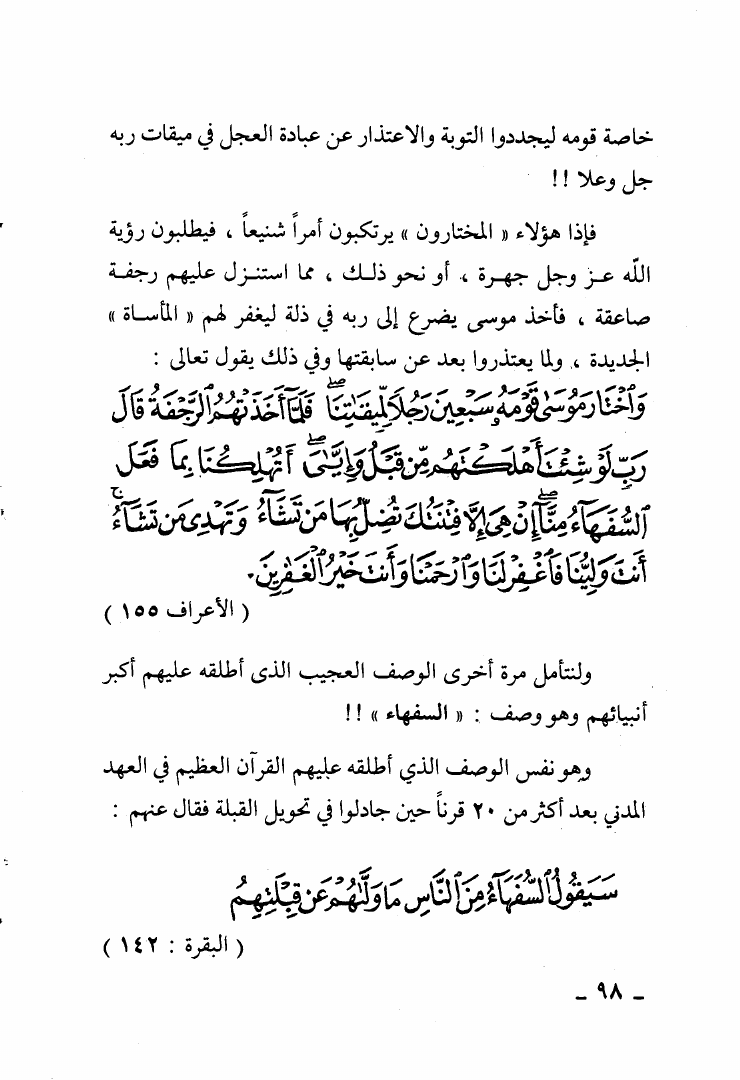 خاصة قومه ليجددوا التوبة والاعتذار عن عبادة العجل في ميقات ربه
جل وعلا !!
فإذا هؤلاء « المختارون » يرتكبون أمراً شنيعاً ، فيطلبون رؤية
الله عز وجل جهرة ، أو نحو ذلك ، مما استنزل عليهم رجفة
صاعقة ، فأخذ موسى يضرع إلى ربه في ذلة ليغفر لهم « المأساة »
الجديدة ، ولما يعتذروا بعد عن سابقتها وفي ذلك يقول تعالى :
وَٱخْتَارَ مُوسَىٰ قَوْمَهُۥ سَبْعِينَ رَجُلًا لِّمِيقَٰتِنَا ۖ فَلَمَّآ أَخَذَتْهُمُ ٱلرَّجْفَةُ قَالَ
رَبِّ لَوْ شِئْتَ أَهْلَكْتَهُم مِّن قَبْلُ وَإِيَّٰىَ ۖ أَتُهْلِكُنَا بِمَا فَعَلَ
ٱلسُّفَهَآءُ مِنَّآ ۖ إِنْ هِىَ إِلَّا فِتْنَتُكَ تُضِلُّ بِهَا مَن تَشَآءُ وَتَهْدِى مَن تَشَآءُ ۚ
أَنتَ وَلِيُّنَا فَٱغْفِرْ لَنَا وَٱرْحَمْنَا وَأَنتَ خَيْرُ ٱلْغَٰفِرِينَ .
( الأعراف ١٥٥ )
ولنتأمل مرة أخرى الوصف العجيب الذى أطلقه عليهم أكبر
أنبيائهم وهو وصف : « السفهاء » !!
وهو نفس الوصف الذي أطلقه عليهم القرآن العظيم في العهد
المدني بعد أكثر من ٢٠ قرناً حين جادلوا في تحويل القبلة فقال عنهم :
سَيَقُولُ ٱلسُّفَهَآءُ مِنَ ٱلنَّاسِ مَا وَلَّىٰهُمْ عَن قِبْلَتِهِمُ
( البقرة : ١٤٢ )
ـ ٩٨ ـ